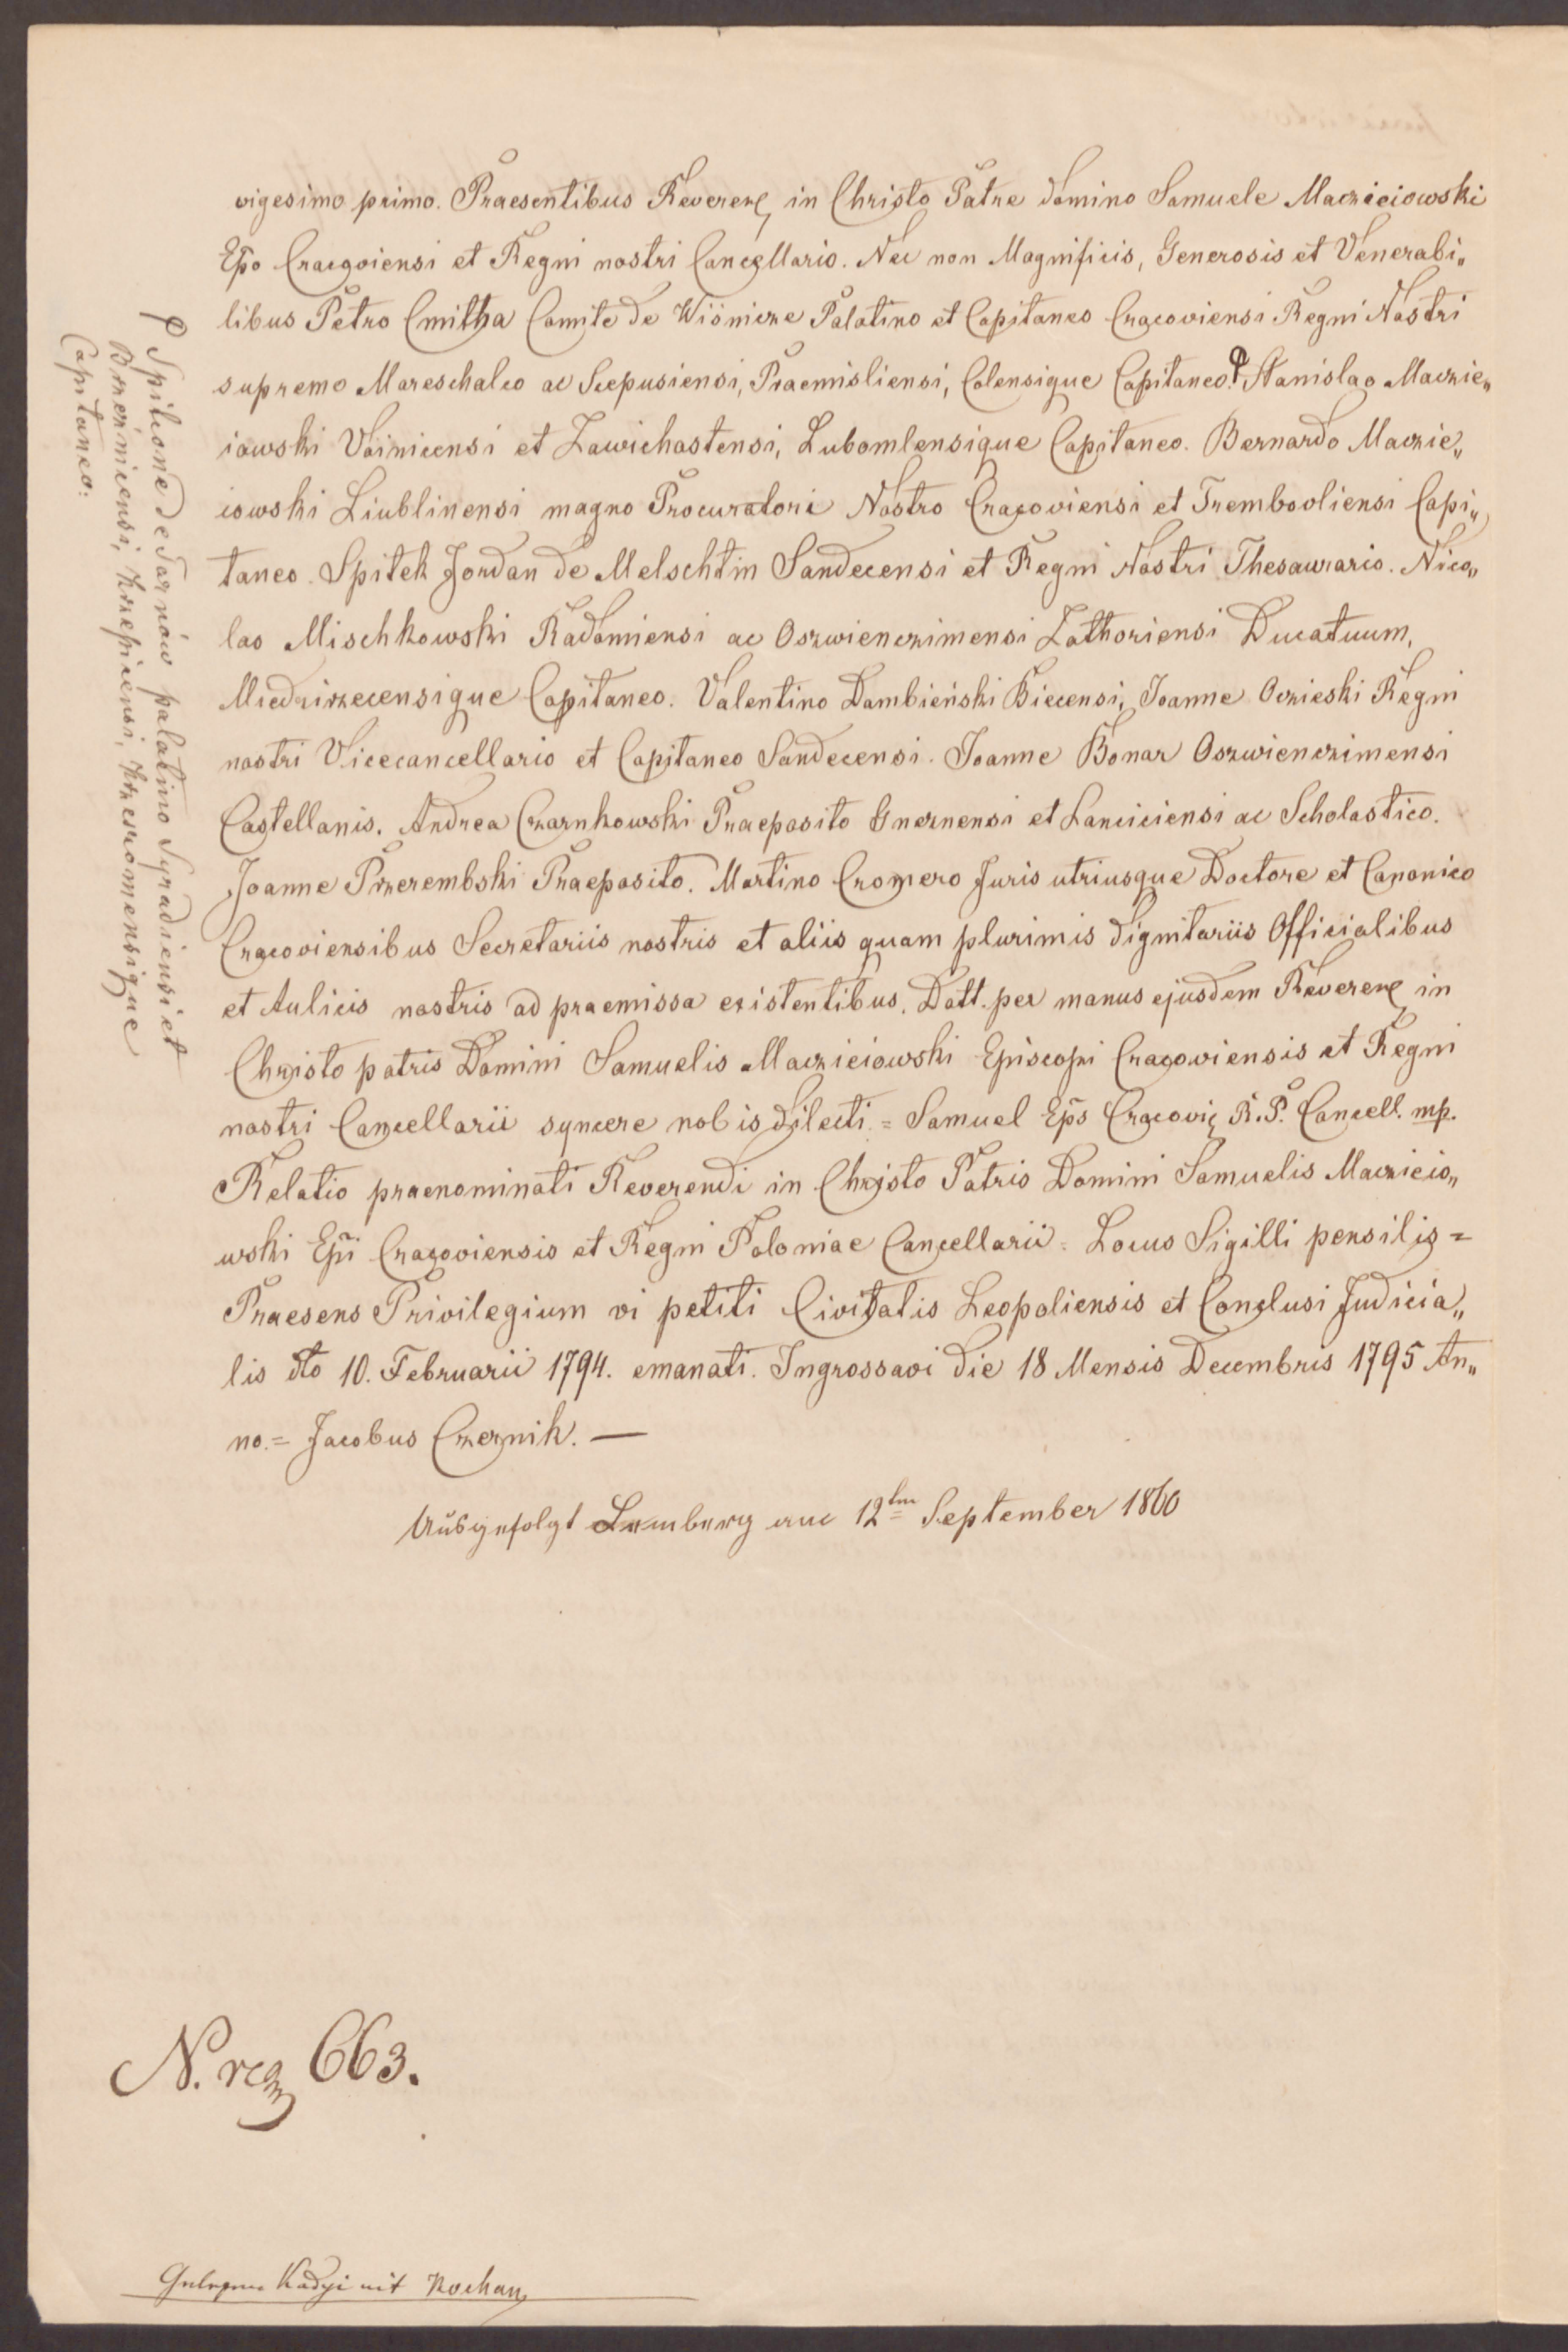 vigesimo primo. Praesentibus Reveren, in Christo Patre domino Samuele Macziciowski
Epo Cracoviensi et Regni nostri Cancellario. Nec non Magnificis, Generosis et Venerabi„
libus Petro Cmitha Comite de Wisnicze Palatino et Capitaneo Cracoviensi Regni Nostri
supremo Mareschalco ac Scepusiensi, Praemisliensi, Colensique Capitaneo. ꟼ Stanislao Maczie„
iowski Voinicensi et Zawichastensi, Lubomlensique Capitaneo. Bernardo Maczie„
iowski Liublinensi magno Procuratori Nostro Cracoviensi et Trembooliensi Capi„
taneo. Spitek Jordan de Melschtin Sandecensi et Regni Nostri Thesaurario. Nico„
lao Mischkowski Radomiensi ac Oszwienczimensi Zathoriensi Ducatuum,
Miedzirzecensique Capitaneo. Valentino Dambieński Biecensi, Joanne Oczieski Regni
nostri Vicecancellario et Capitaneo Sandecensi. Joanne Bonar Oszwienczimensi
Castellanis. Andrea Czarnkowski Praeposito Gneznensi et Lanciciensi ac Scholastico.
Joanne Przerembski Praeposito. Martino Cromero Juris utriusque Doctore et Canonico
Cracoviensibus Secretariis nostris et aliis quam plurimis dignitariis Officialibus
et Aulicis nostris ad praemissa existentibus. Datt. per manus ejusdem Reveren, in
Christo patris Domini Samuelis Macziciowski Episcopi Cracoviensis et Regni
nostri Cancellarii syncere nobis dilecti. = Samuel Eps Cracovię R. P. Cancell. mp.
Relatio praenominati Reverendi in Christo Patris Domini Samuelis Maczicio„
wski Epi Cracoviensis et Regni Poloniae Cancellarii = Locus Sigilli pensilis =
Praesens Privilegium vi petiti Civitatis Leopoliensis et Conclusi Judicia„
lis dto 10. Februarii 1794. emanati. Ingrossavi die 18 Mensis Decembris 1795 An„
no. = Jacobus Czernik. —
Ausgefolgt Lemberg am 12ten September 1860
ꟼ Spitcone de Jarnów palatino Syradiensi et
Brzeznicensi, Krzepicensi, Krzesromensique
Capitaneo.
N. reg 663.
Gelesen Kadyi mit Kochan